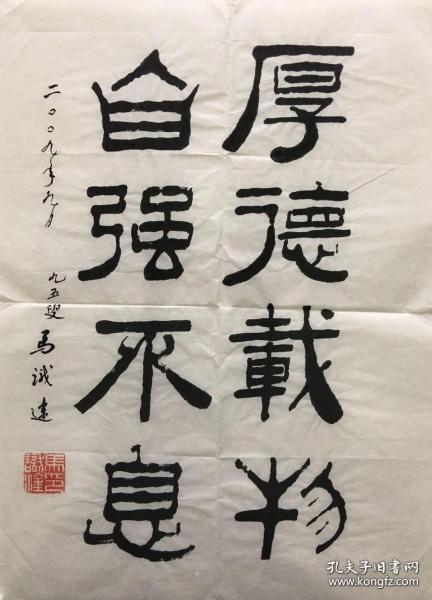 厚德载物
自强不息
二〇〇九年九月
九五叟 马识途
孔夫子旧书网
www.kongfz.com